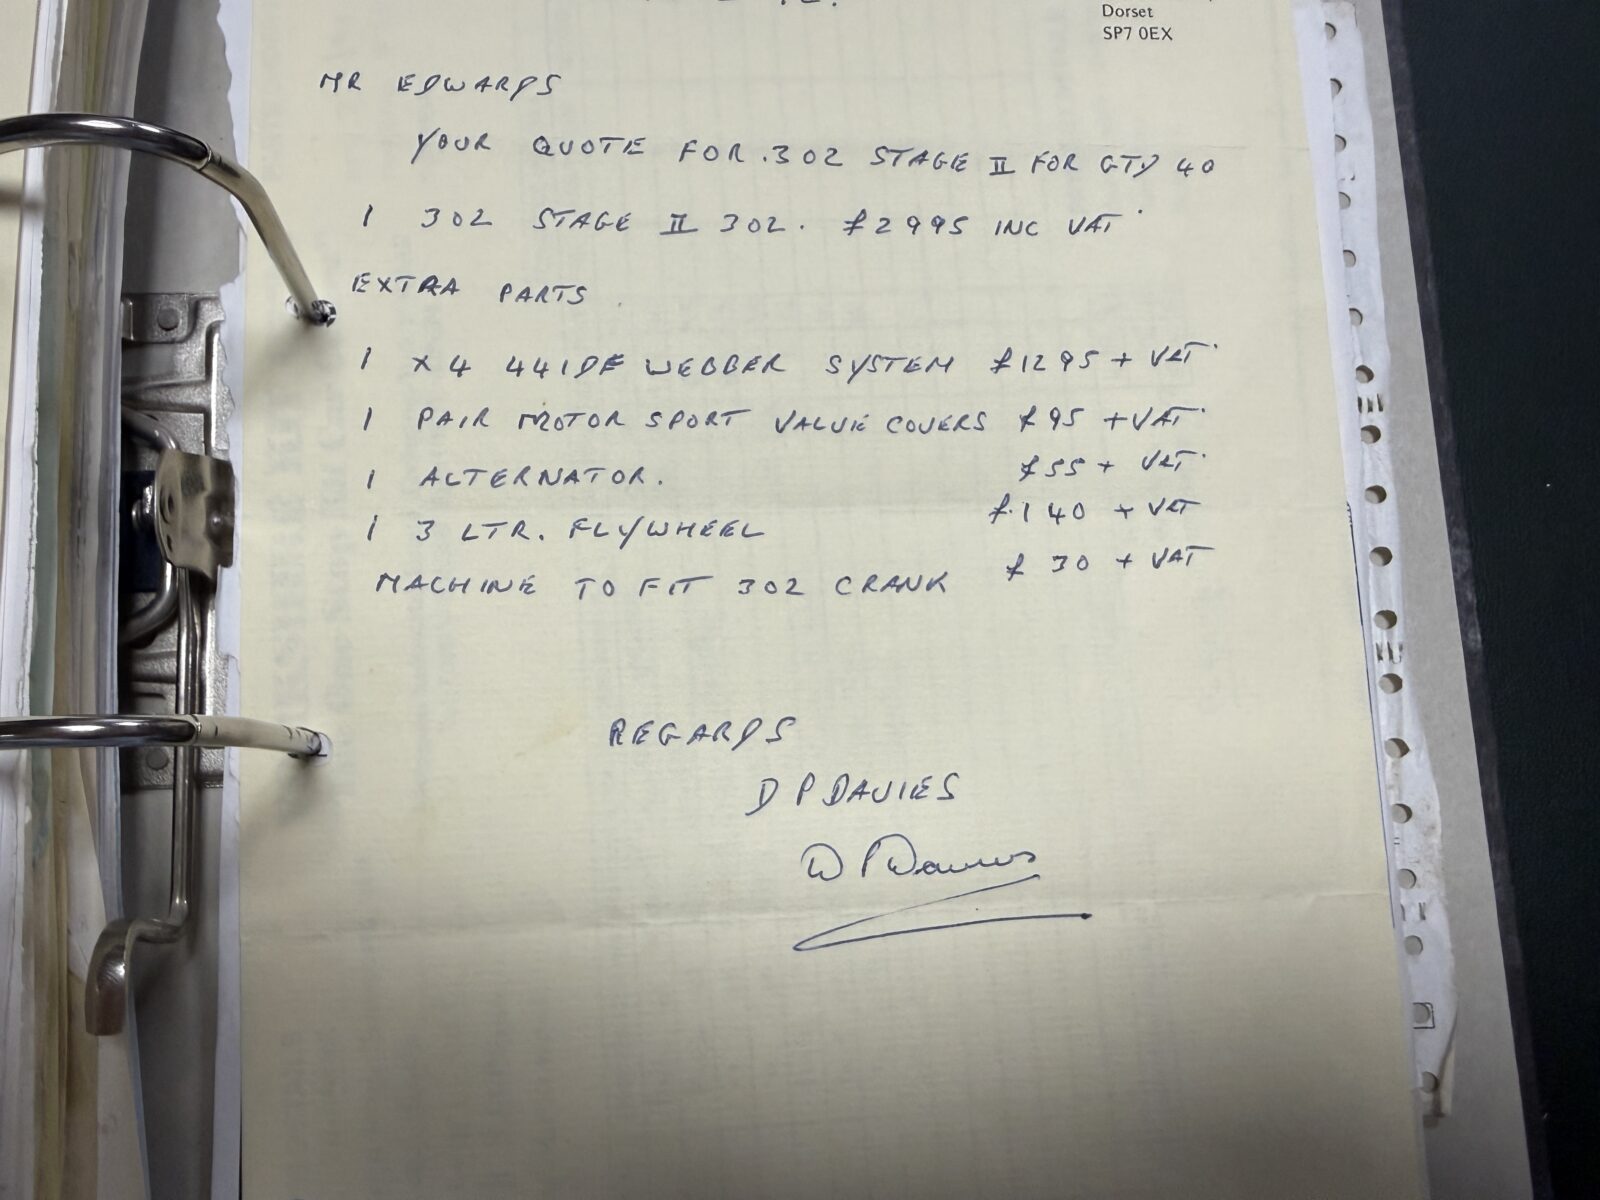 Dorset
SP7 0EX
MR EDWARDS
YOUR QUOTE FOR .302 STAGE II FOR GTD 40
1 302 STAGE II 302. £2995 INC VAT
EXTRA PARTS.
1 X 4 44IDF WEBBER SYSTEM £1295 + VAT
1 PAIR MOTOR SPORT VALUE COVERS £95 + VAT
1 ALTERNATOR. £55 + VAT
1 3 LTR. FLYWHEEL £140 + VAT
MACHINE TO FIT 302 CRANK £30 + VAT
REGARDS
D P DAVIES
D P Davies